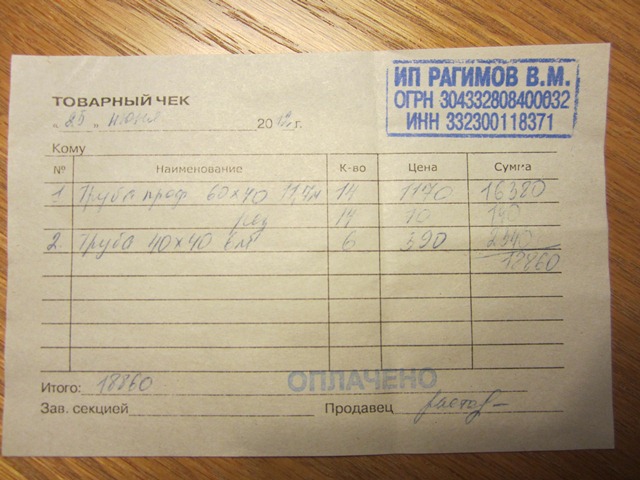 ИП РАГИМОВ В.М.
ОГРН 304332808400032
ИНН 332300118371
ТОВАРНЫЙ ЧЕК
„ 25 „ июня 2012 г.
Кому
№ Наименование К-во Цена Сумма
1 Труба проф 60х40 11,7м 14 1170 16380
рез 14 10 140
2. Труба 40х40 6 390 2340
18860
Итого: 18860
ОПЛАЧЕНО
Зав. секцией Продавец